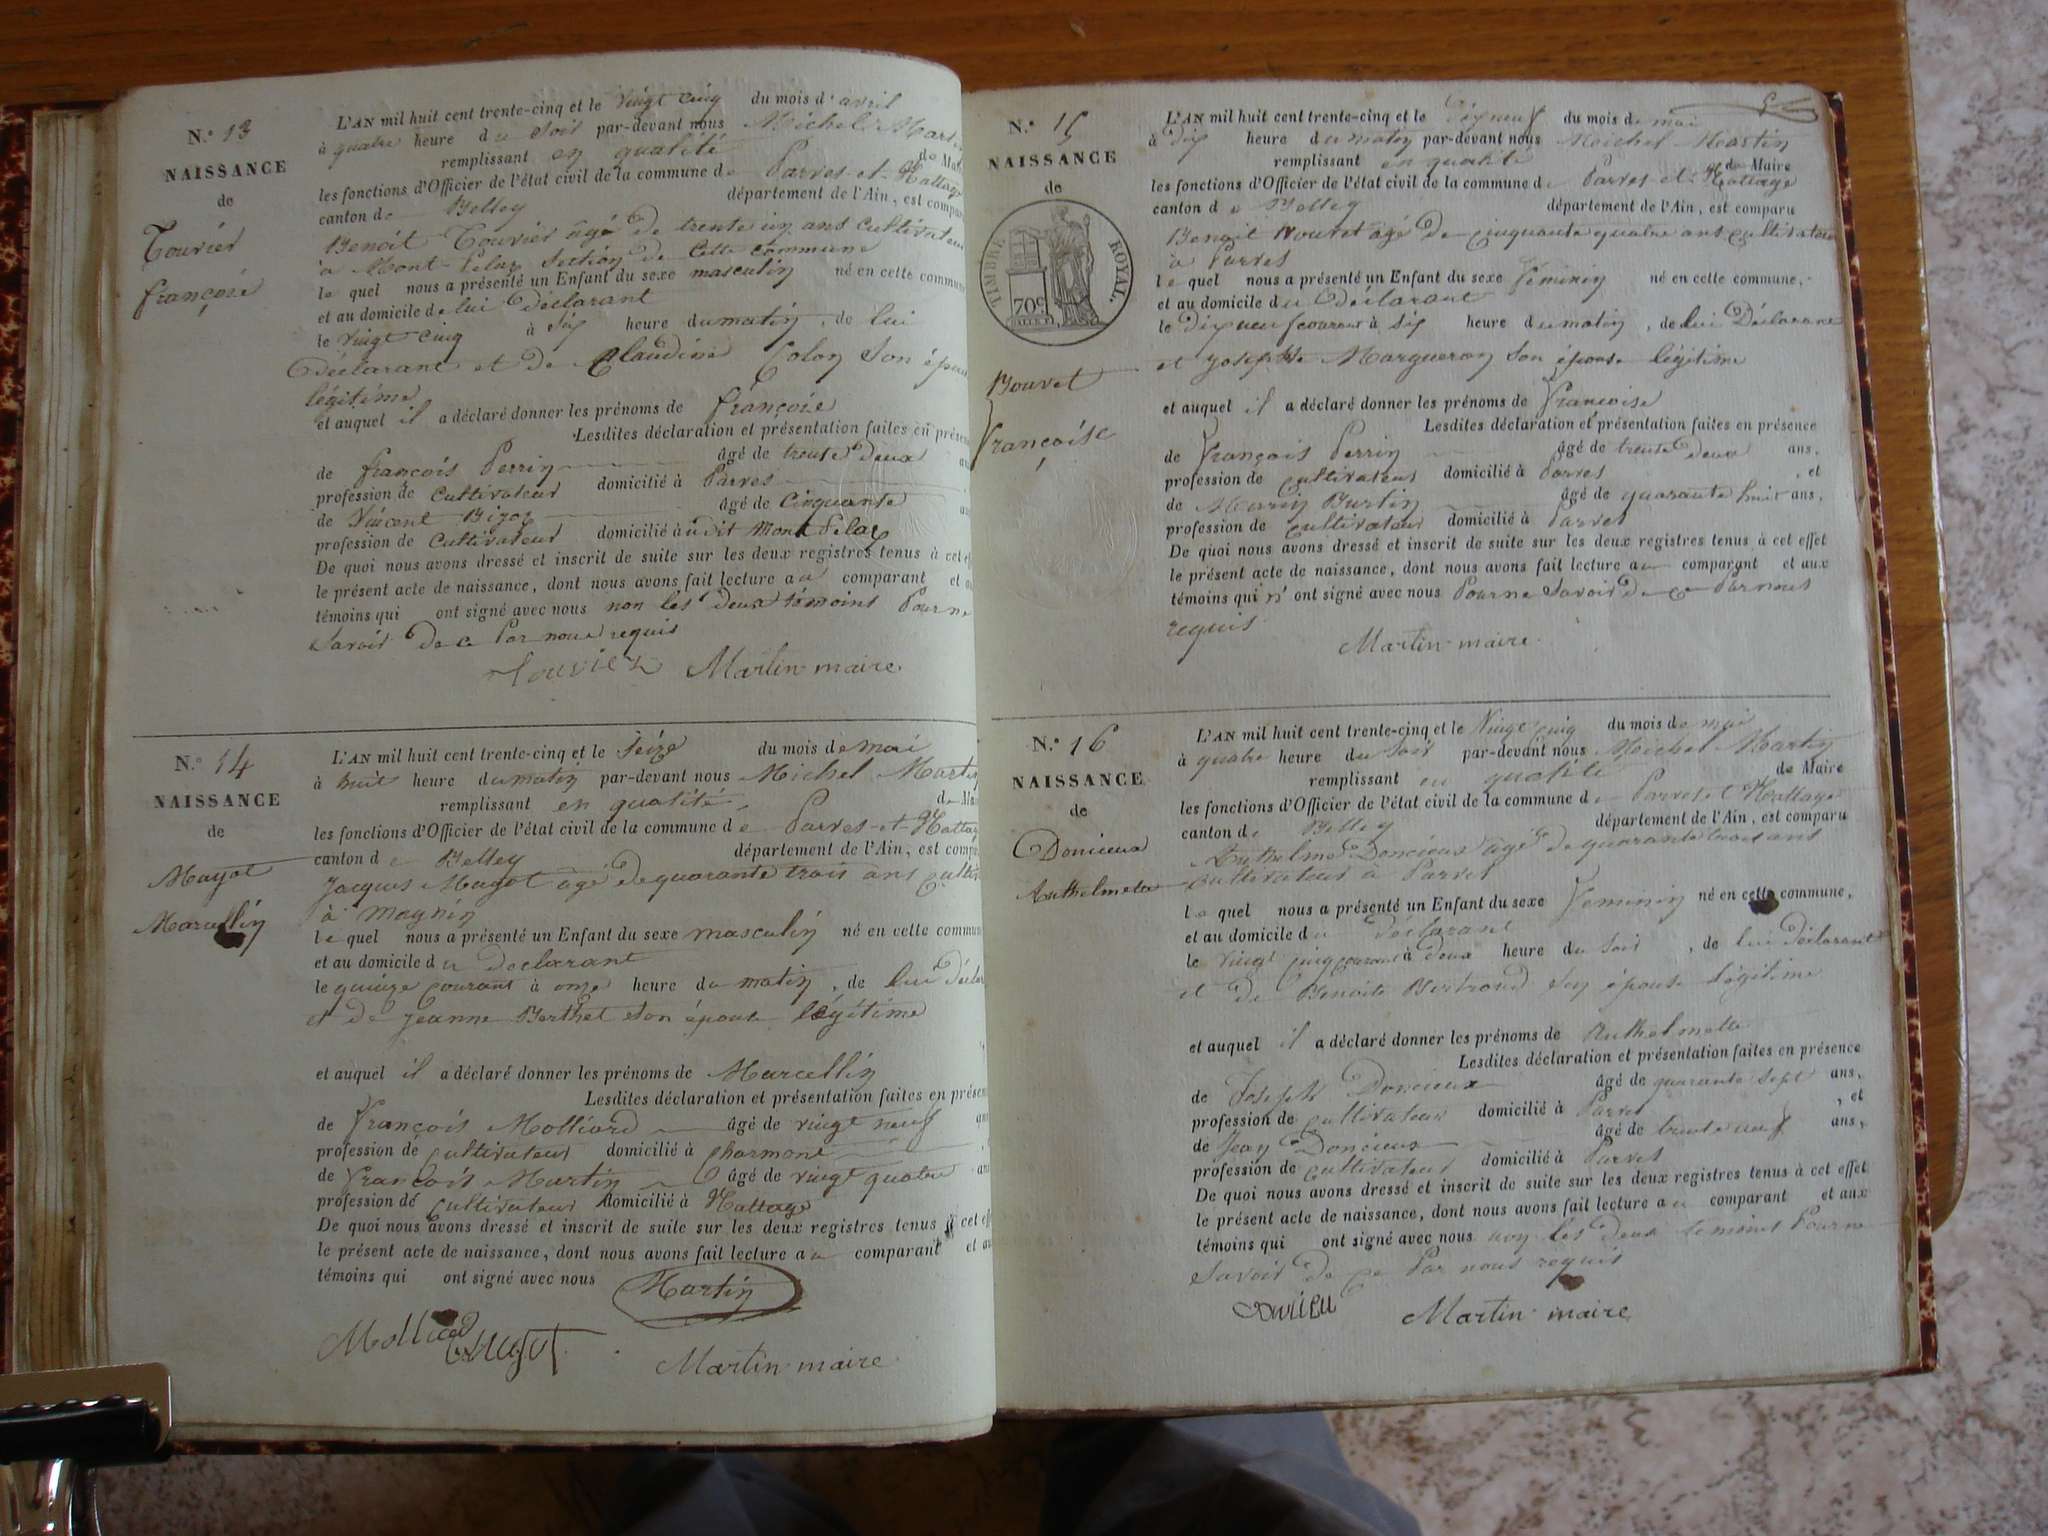 N.° 13
NAISSANCE
de
Touvier
françoise
L'AN mil huit cent trente-cinq et le vingt cinq du mois d'avril
à quatre heure du soir par-devant nous Michel Mart
remplissant en qualité de Mai
les fonctions d'Officier de l'état civil de la commune de Parves-et-Nattage
canton de Belley département de l'Ain, est comparu
Benoit Touvier âgé de trente un ans cultivateur
à Mont-Pelaz section de cette commune
le quel nous a présenté un Enfant du sexe masculin né en cette commune
et au domicile de lui déclarant
le vingt cinq à six heure du matin, de lui
Déclarant et de Claudine Colon son épouse
légitime
et auquel il a déclaré donner les prénoms de françoise
Lesdites déclaration et présentation faites en présen
de françois Perrin âgé de trente deux an
profession de cultivateur domicilié à Parves
de Vincent Bizoz âgé de cinquante an
profession de Cultivateur domicilié à udit Mont Pelaz
De quoi nous avons dressé et inscrit de suite sur les deux registres tenus à cet ef
le présent acte de naissance, dont nous avons fait lecture au comparant et au
témoins qui ont signé avec nous non les deux témoins Pour ne
savoir De ce Par nous requis
Touvier Martin maire
N.° 14
NAISSANCE
de
Mugot
Marcellin
L'AN mil huit cent trente-cinq et le seize du mois de mai
à huit heure du matin par-devant nous Michel Marti
remplissant en qualité de Ma
les fonctions d'Officier de l'état civil de la commune de Parves-et-Nattag
canton de Belley département de l'Ain, est compa
Jacques Mugot âgé de quarante trois ans culti
à Magnin
le quel nous a présenté un Enfant du sexe masculin né en cette commun
et au domicile du declarant
le quinze courant à onze heure du matin, de lui décla
et de Jeanne Berthet son épouse légitime
et auquel il a déclaré donner les prénoms de Marcellin
Lesdites déclaration et présentation faites en présen
de François Molliard âgé de vingt neuf an
profession de cultivateur domicilié à Charmont
de François Martin âgé de vingt quatre an
profession de cultivateur domicilié à Nattage
De quoi nous avons dressé et inscrit de suite sur les deux registres tenus à cet eff
le présent acte de naissance, dont nous avons fait lecture au comparant et au
témoins qui ont signé avec nous Martin
Molliard Mugot
Martin maire
N.° 15
NAISSANCE
de
TIMBRE ROYAL.
70c
Bouvet
françoise
L'AN mil huit cent trente-cinq et le Dixneuf du mois de mai
à dix heure du matin par-devant nous Michel Martin
remplissant en qualité de Maire
les fonctions d'Officier de l'état civil de la commune de Parves-et-Nattage
canton de Belley département de l'Ain, est comparu
Benoit Bouvet âgé De cinquante quatre ans cultivateur
à Parves
le quel nous a présenté un Enfant du sexe féminin né en cette commune,
et au domicile du Déclarant
le dixneuf courant à six heure du matin, de lui Déclarant
et Josephte Margueron son épouse légitime
et auquel il a déclaré donner les prénoms de francoise
Lesdites déclaration et présentation faites en présence
de François Perrin âgé de trente deux ans,
profession de cultivateur domicilié à Parves, et
de Marin Burtin âgé de quarante huit ans,
profession de cultivateur domicilié à Parves
De quoi nous avons dressé et inscrit de suite sur les deux registres tenus à cet effet
le présent acte de naissance, dont nous avons fait lecture au comparant et aux
témoins qui n'ont signé avec nous Pour ne savoir De ce Par nous
requis
Martin maire
N.° 16
NAISSANCE
de
Doncieux
Anthelmette
L'AN mil huit cent trente-cinq et le Vingt cinq du mois de mai
à quatre heure du soir par-devant nous Michel Martin
remplissant en qualité de Maire
les fonctions d'Officier de l'état civil de la commune de Parves et Nattage
canton de Belley département de l'Ain, est comparu
Anthelme Doncieux âgé de quarante trois ans
cultivateur à Parves
le quel nous a présenté un Enfant du sexe feminin né en cette commune,
et au domicile du déclarant
le vingt cinq courant à deux heure du soir, de lui déclarant
et de Benoite Bertrand son épouse légitime
et auquel il a déclaré donner les prénoms de Anthelmette
Lesdites déclaration et présentation faites en présence
de Joseph Doncieux âgé de quarante sept ans,
profession de cultivateur domicilié à Parves, et
de Jean Doncieux âgé de trente neuf ans,
profession de cultivateur domicilié à Parves
De quoi nous avons dressé et inscrit de suite sur les deux registres tenus à cet effet
le présent acte de naissance, dont nous avons fait lecture au comparant et aux
témoins qui ont signé avec nous non les deux temoins Pour ne
savoir De ce Par nous requis
Martin maire